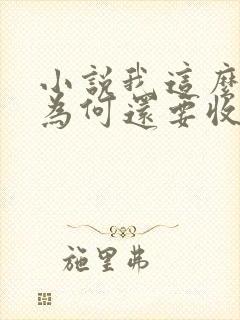 小說我這麼
為何還要收
施里弗